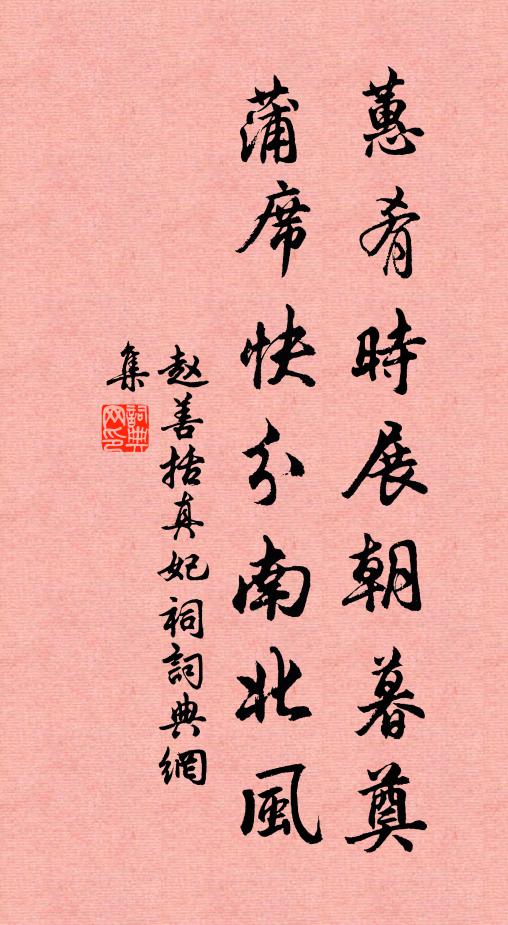 蕙肴時展朝暮奠
蒲席快分南北風
赵善括真妃祠詞典網
集
詞典網印